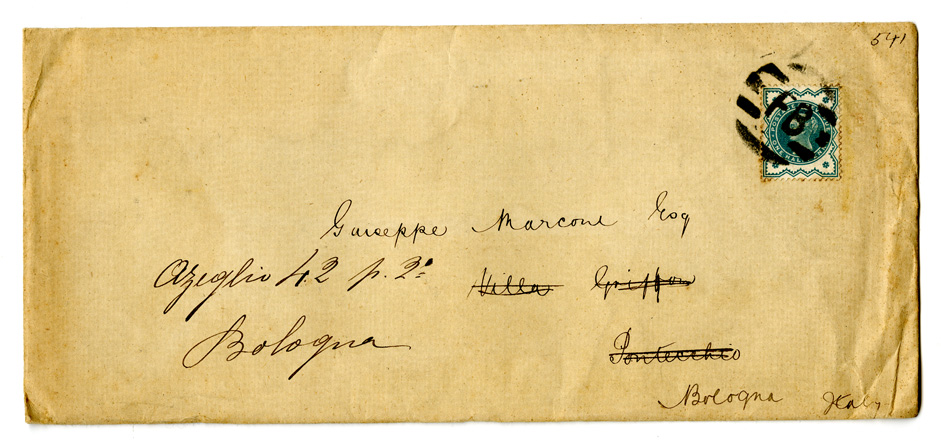 541
POSTAGE & REVENUE
ONE HALFPENNY
Giuseppe Marconi Esq
Azeglio 42 p. 2º
Villa Griffone
Bologna
Pontecchio
Bologna Italy